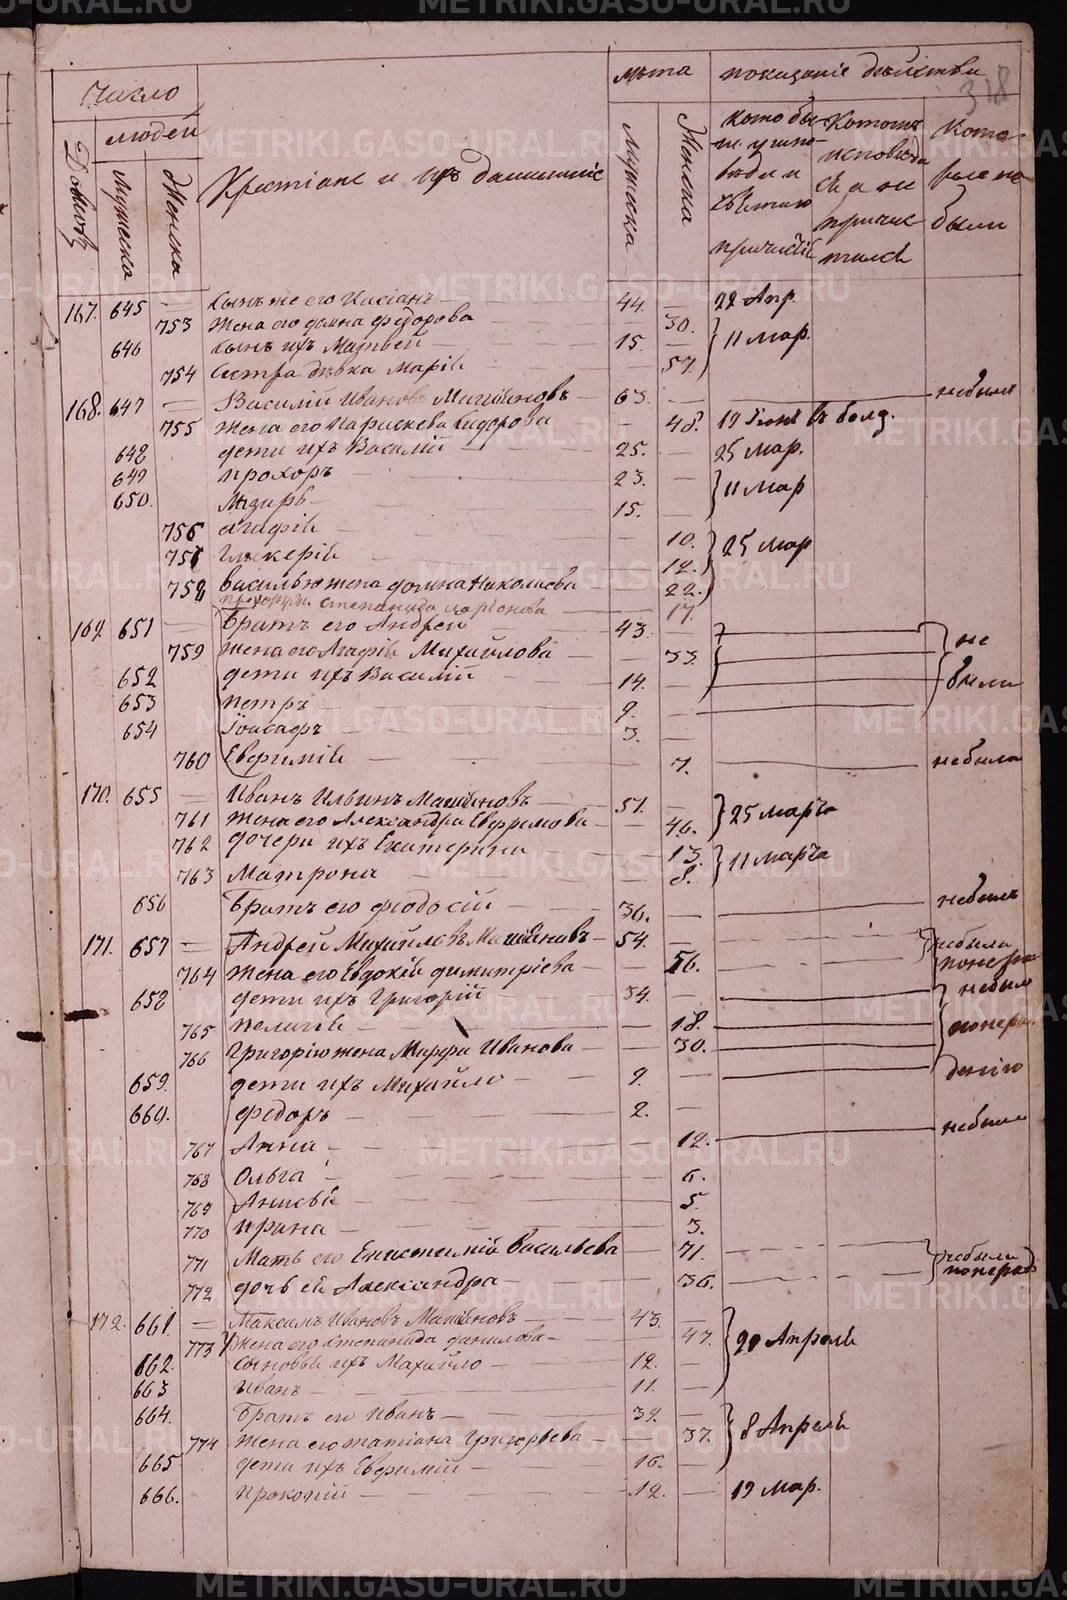 318
Число
людей
Крестіане и ихъ домашніе
лѣта
показаніе дѣйства
Домовъ
Мужеска
Женска
Мужеска
Женска
кото бы-
ли
и
причастія
Которы
исповѣда
а не
причас
тилсѣ
кото-
рые не
были
167. 645 — сынъ же его Касіанъ — 44. 22 Апр.
753 жена его домна федорова — 30.
646 сынъ ихъ Матвей — 15. — 11 мар.
754 Сестра дѣвка Маріѣ — 57.
168. 647 — Василій Ивановъ — 63. — небылъ
755 жена его Парискева Сидорова — 48. 19
648 дети ихъ Василій — 25. — 25 мар.
649 прохоръ — 23. — 11 мар
650. Лазарь — 15. —
756 агафіѣ — 10. 25 мар
757 гликеріѣ — 12.
758 василью жена домна Николаева — 22.
степанида ларіонова — 17.
169. 651 — братъ его Андрей — 43. — не
759 жена его Агафіѣ Михайлова — 33. были
652 дети ихъ Василій — 14. —
653 петръ — 9. —
654 Іоасафъ — 3. —
760 Евфиміѣ — 7. — небыла
170. 655 — Иванъ Ильинъ — 51. — 25 марта
761 жена его Александра Евфимова — 46.
762 дочери ихъ Екатерина — 13. 11 марта
763 Матрона — 8.
656 братъ его феодосій — 36. — небылъ
171. 657 — Андрей Михайловъ — 54. — небыли
764 жена его Евдокіѣ димитріева — 56.
658 дети ихъ Григорій — 34. —
765 — 18.
766 Григорію жена Марфа Иванова — 30.
659. дети ихъ Михайло — 9. —
660. федоръ — 2. —
767 Анна — 12. — небыла
768 Ольга — 6.
769 Анисьѣ — 5.
770 ирина — 3.
771 Мать его Васильева — 71. небыли
772 дочь ей Александра — 36.
172. 661. — Максимъ Ивановъ — 43. — 20 Апрелѣ
773 жена его степанида данилова — 47.
662. сыновьѣ ихъ Михайло — 12. —
663 иванъ — 11. —
664. братъ его иванъ — 39. — 8 Апрелѣ
774 жена его татіана Григорьева — 37.
665 дети ихъ Евфимій — 16. —
666. прокопій — 12. — 19 мар.
METRIKI.GASO-URAL.RU